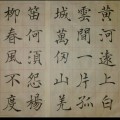 黃河遠上白
雲間一片孤
城萬仞山羌
笛何須怨楊
柳春風不度